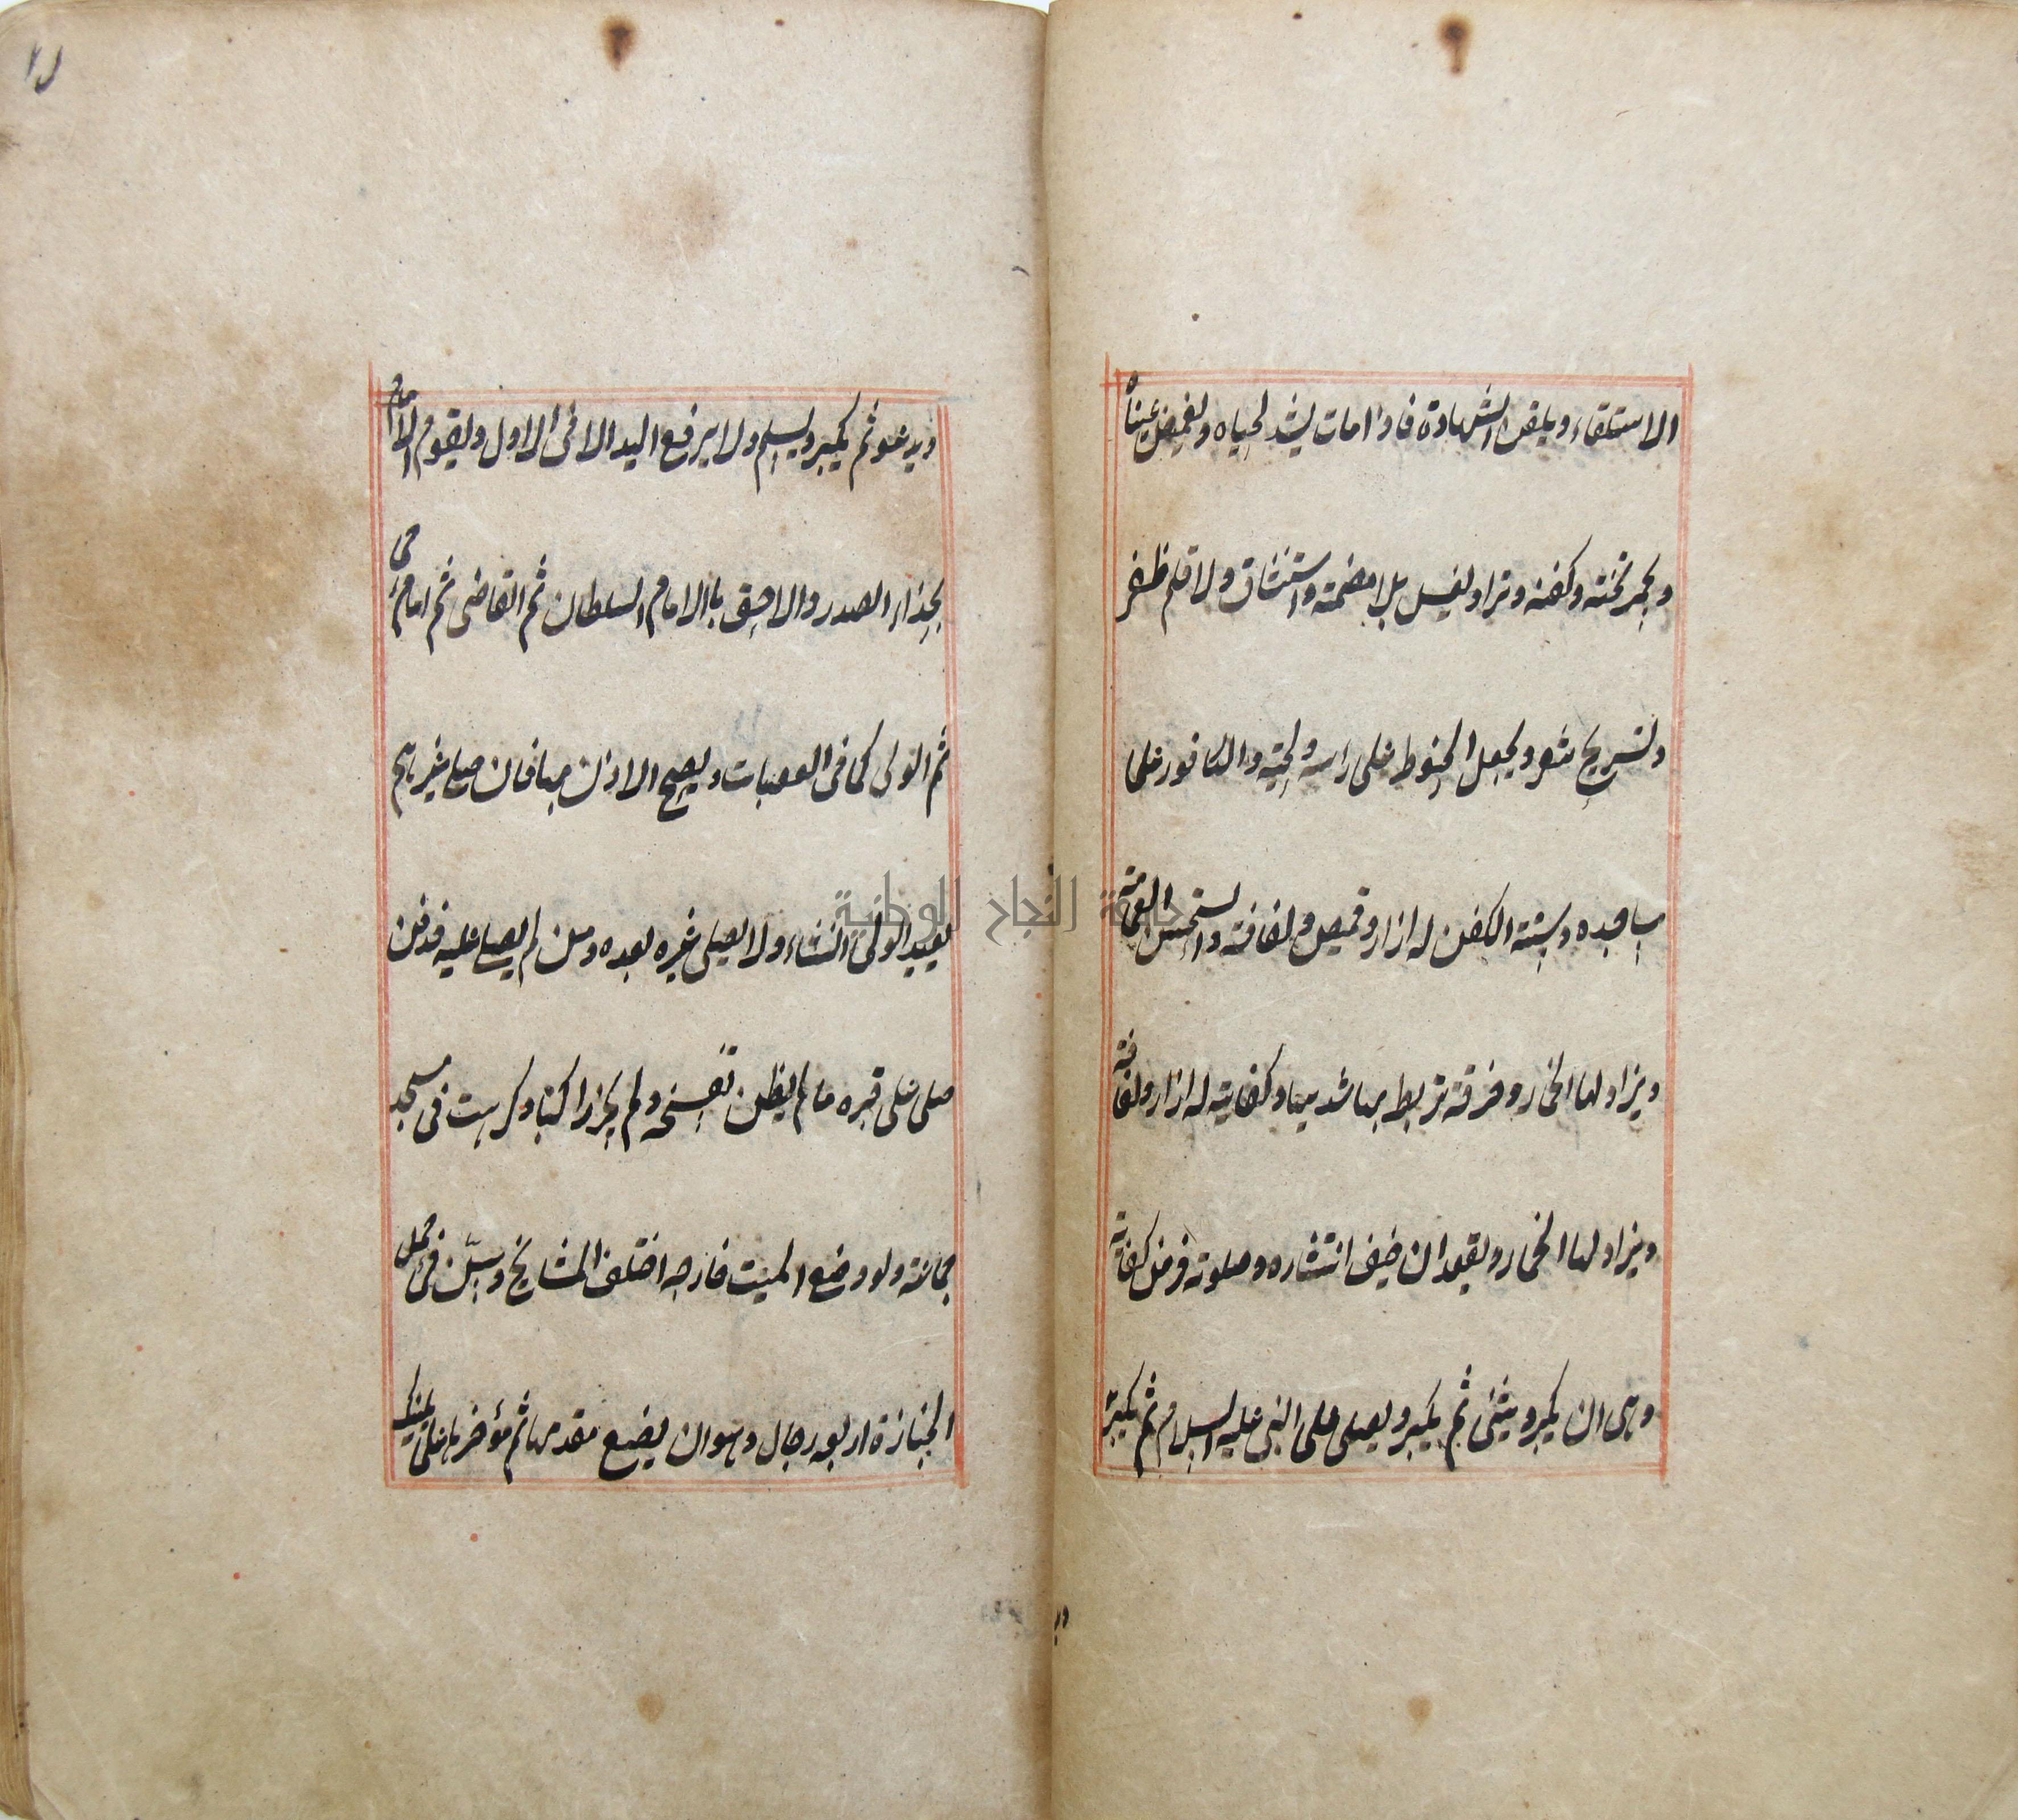 الاستلقاء ويلقن الشهادة فاذا مات يشد لحياه ويغمض عيناه
ويجمر تخته وكفنه وترا ويغسل بلا مضمضة واستنشاق ولا قلم ظفر
وتسريح شعر ويجعل الحنوط على راسه ولحيته والكافور على
مساجده وسنة الكفن له ازار وقميص ولفافة واستحسن العمامة
ويزاد لها الخمار وخرقة تربط بها ثدييها وكفايته له ازار ولفافة
ويزاد لها الخمار ويعقد ان خيف انتشاره وصلوته فرض كفاية
وهي ان يكبر ويثنى ثم يكبر ويصلى على النبي عليه السلام ثم يكبر
ويدعو ثم يكبر ويسلم ولا يرفع اليد الا في الاول ويقوم الامام
بحذاء الصدر والاحق بالامام السلطان ثم القاضى ثم امام الحى
ثم الولى كما فى العصبات ويصح الاذن بها فان صلى غيرهم
يعيد الولى ان شاء ولا يصلى غيره بعده ومن لم يصل عليه فدفن
صلى على قبره ما لم يظن تفسخه ولم يجز راكبا وكرهت فى مسجد
جماعة ولو وضع الميت خارجه اختلف المشايخ وسن فى حمل
الجنازة اربعة رجال وهو ان يضع مقدمها ثم مؤخرها على يمينك
جامعة النجاح الوطنية